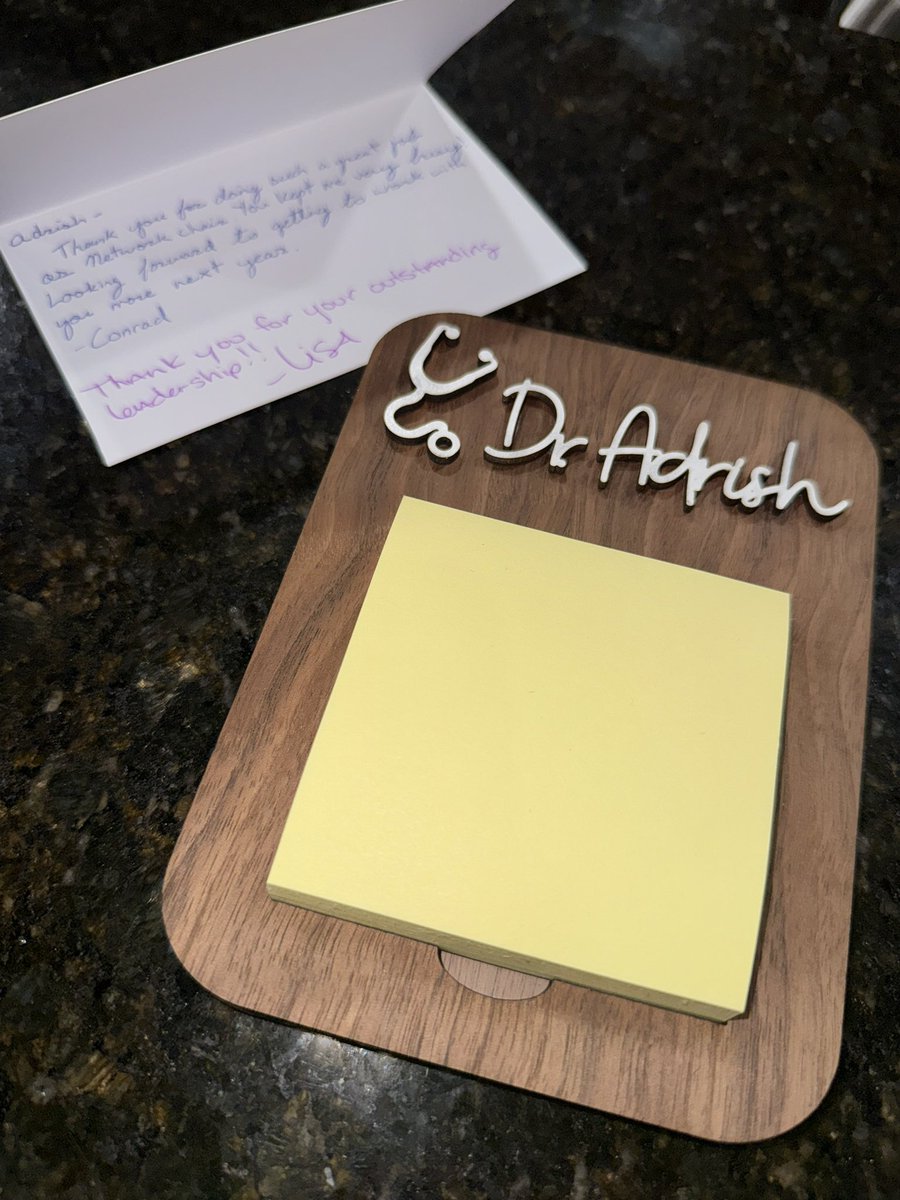 Adrish -
Thank you for doing such a great job
as Network chair. You kept me very busy!
Looking forward to getting to work with
you more next year.
- Conrad
Thank you for your outstanding
leadership!! - Lisa
Dr Adrish